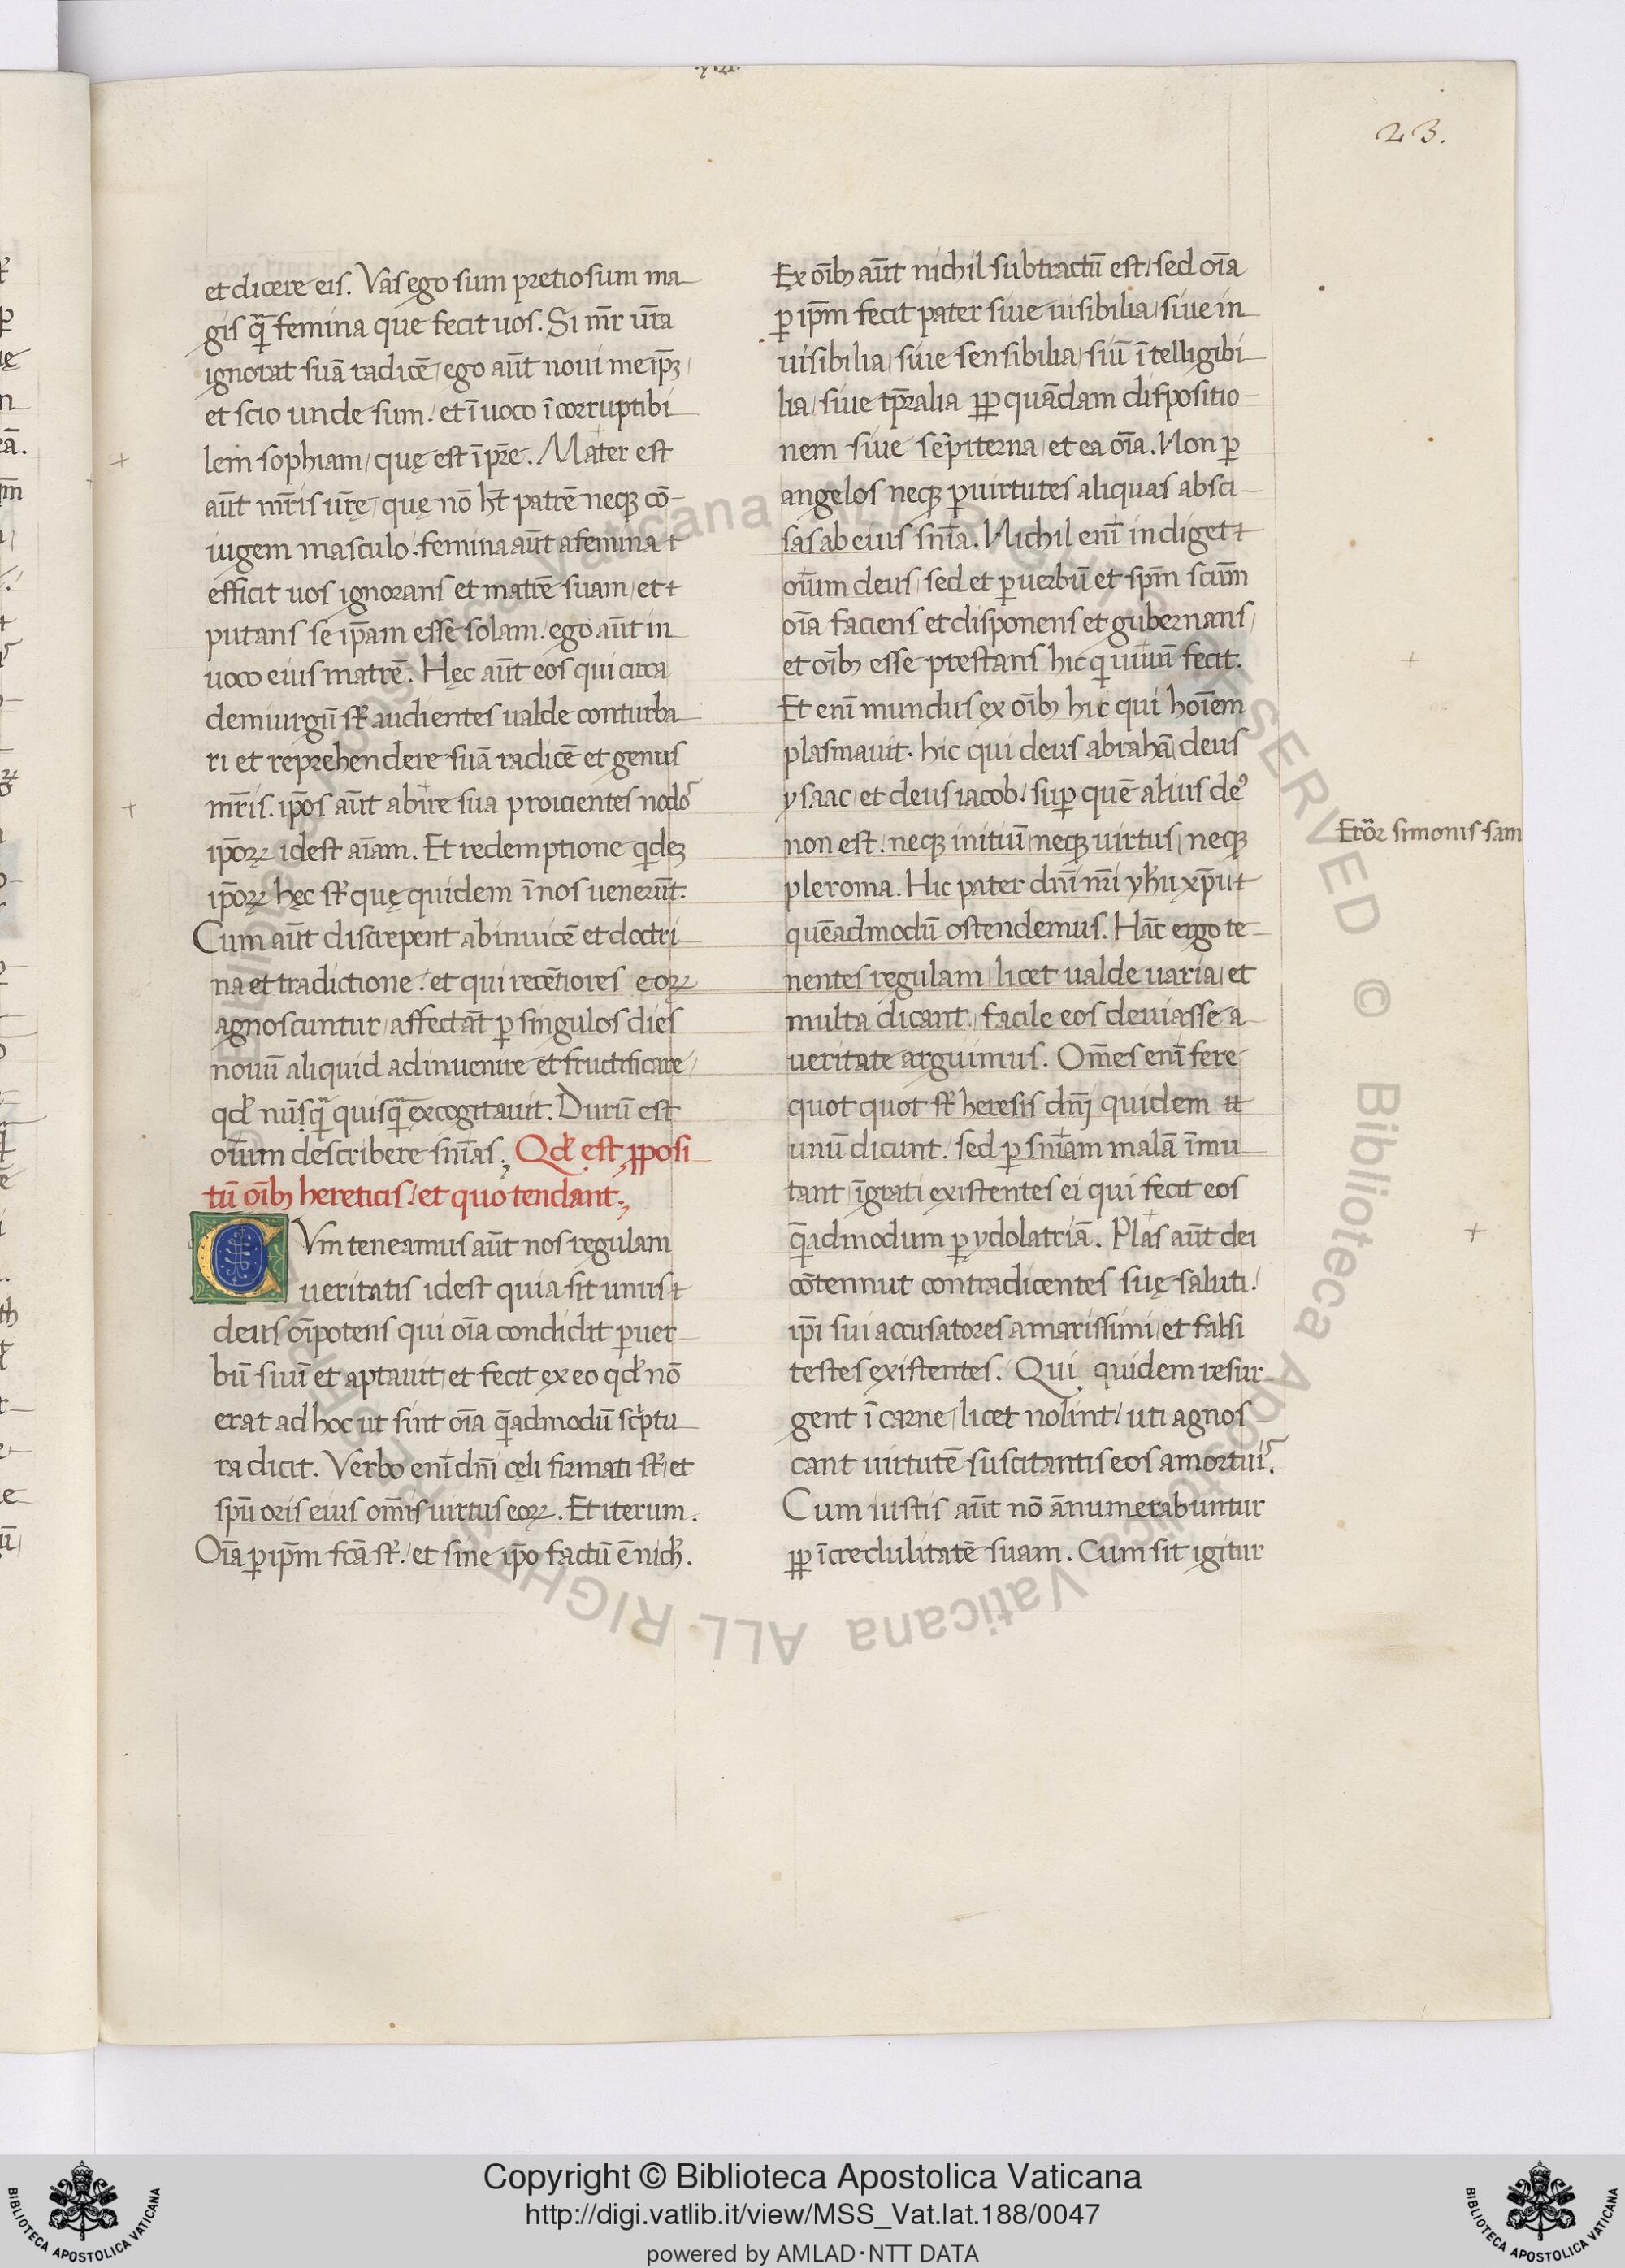 23.
et dicere eis. Vas ego sum pretiosum ma
gis q̄ femina que fecit uos. Si mr̄ ur̄a
ignorat suā radicē, ego aūt noui me ip̄ꝫ,
et scio unde sum. et ī uoco īcorruptibi
lem sophiam, quę est ī pr̄e. Mater est
aūt mr̄is ur̄ę, quę nō ht̄ patrē neqꝫ cō
iugem masculo. femina aūt a femina t
efficit uos ignorans et matrē suam, et t
putans se ip̄am esse solam. ego aūt in
uoco eius matrē. Hęc aūt eos qui circa
demiurgū st̄ audientes ualde conturba
ri et reprehendere suā radicē et genus
mr̄is. ip̄os aūt abire sua proicientes nodoꝰ
ip̄oꝝ idest aīam. Et redemptione qͥdeꝫ
ip̄oꝝ hęc st̄ quę quidem ī nos uenerūt.
Cum aūt discrepent abinuicē et doctri
na et tradictione. et qui recētiores eoꝝ
agnoscuntur, affectāt ꝑ singulos dies
nouū aliquid adinuenire et fructificare,
qd̄ nūsq̄ quisq̄ excogitauit. Durū est
oīum describere snīas. Qd̄ est ꝓposi
tū oībꝫ hereticis. et quo tendant.
CVm teneamus aūt nos regulam
ueritatis idest quia sit unus t
deus oīpotens qui oīa condidit ꝑ uer
bū suū et aptauit, et fecit ex eo qd̄ nō
erat ad hoc ut sint oīa q̄admodū scͥptu
ra dicit. Verbo enī dn̄i cęli firmati st̄, et
spū oris eius om̄is uirtus eoꝝ. Et iterum.
Oīa ꝑ ip̄m fc̄a st̄. et sine ip̄o factū ē nich̄.
Ex oībꝫ aūt nichil subtractū est, sed oīa
ꝑ ip̄m fecit pater siue uisibilia, siue in
uisibilia, siue sensibilia, siū ītelligibi
lia, siue tp̄ralia ꝓp quādam dispositio
nem siue sēpiterna, et ea oīa. Non ꝑ
angelos neqꝫ ꝑ uirtutes aliquas absci
sas ab eius snīa. Nichil enī indiget t
oīum deus, sed et ꝑ uerbū et spm̄ scūm
oīa faciens et disponens et gubernans,
et oībꝫ esse prestans hic fecit.
Et enī mundus ex oībꝫ hic qui hoīem
plasmauit. hic qui deus abrahā, deus
ysaac, et deus iacob. suꝑ quē alius deꝰ
non est. neqꝫ initiū, neqꝫ uirtus, neqꝫ
pleroma. Hic pater dn̄i nr̄i yh̄u xp̄i ut
quēadmodū ostendemus. Hāc ergo te
nentes regulam, licet ualde uaria, et
multa dicant. facile eos deuiasse a
ueritate arguimus. Om̄es enī fere
quot quot st̄ heresis dn̄j quidem
unū dicunt. sed ꝑ snīam malā īmu
tant, īgrati existentes ei qui fecit eos
q̄admodum ꝑ ydolatriā. Plas aūt dei
cōtennut contradicentes suę saluti.
ip̄i sui accusatores amarissimi, et falsi
testes existentes. Qui quidem resur
gent ī carne, licet nolint. uti agnos
cant uirtutē suscitantis eos a mortuīs.
Cum iustis aūt nō ānumerabuntur
ꝓp īcredulitatē suam. Cum sit igitur
Erōr simonis sam
Copyright © Biblioteca Apostolica Vaticana
http://digi.vatlib.it/view/MSS_Vat.lat.188/0047
powered by AMLAD·NTT DATA
BIBLIOTECA APOSTOLICA VATICANA
BIBLIOTECA APOSTOLICA VATICANA
© Biblioteca Apostolica Vaticana ALL RIGHTS RESERVED